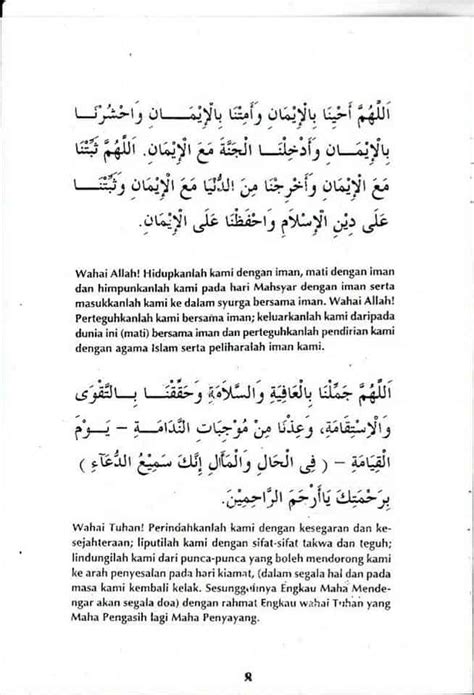 اَللّٰهُمَّ أَحْيِنَا بِالْإِيْمَانِ وَأَمِتْنَا بِالْإِيْمَـــانِ وَاحْشُرْنَـا
بِالْإِيْمَـــانِ وَأَدْخِلْنَـــا الْجَنَّةَ مَعَ الْإِيْمَانِ. اَللّٰهُمَّ ثَبِّتْنَا
مَعَ الْإِيْمَانِ وَأَخْرِجْنَا مِنَ الدُّنْيَا مَعَ الْإِيْمَانِ وَثَبِّتْنَـــا
عَلَى دِيْنِ الْإِسْلَامِ وَاحْفَظْنَا عَلَى الْإِيْمَانِ.
Wahai Allah! Hidupkanlah kami dengan iman, mati dengan iman
dan himpunkanlah kami pada hari Mahsyar dengan iman serta
masukkanlah kami ke dalam syurga bersama iman. Wahai Allah!
Perteguhkanlah kami bersama iman; keluarkanlah kami daripada
dunia ini (mati) bersama iman dan perteguhkanlah pendirian kami
dengan agama Islam serta peliharalah iman kami.
اَللّٰهُمَّ جَمِّلْنَا بِالْعَافِيَةِ وَالسَّلَامَةِ وَحَقِّقْنَـــا بِـــالتَّقْوَى
وَالْاِسْتِقَامَةِ، وَعِذْنَا مِنْ مُوْجِبَاتِ النَّدَامَـــةِ – يَـــوْمَ
الْقِيَامَةِ – ( فِى الْحَالِ وَالْمَأٰلِ إِنَّكَ سَمِيْعُ الدُّعَآءِ )
بِرَحْمَتِكَ يَاأَرْحَمَ الرَّاحِمِيْنَ.
Wahai Tuhan! Perindahkanlah kami dengan kesegaran dan ke-
sejahteraan; liputilah kami dengan sifat-sifat takwa dan teguh;
lindungilah kami dari punca-punca yang boleh mendorong kami
ke arah penyesalan pada hari kiamat, (dalam segala hal dan pada
masa kami kembali kelak. Sesungguhnya Engkau Maha Mende-
ngar akan segala doa) dengan rahmat Engkau wahai Tuhan yang
Maha Pengasih lagi Maha Penyayang.
8